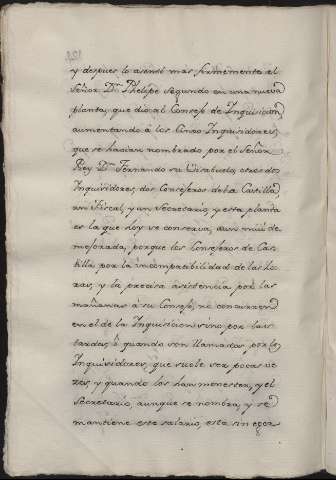 y despues lo asentó mas firmemente el
Señor Dn Phelipe segundo en una nueva
planta, que dió al Consejo de Inquisicion,
aumentando á los Cinco Inquisidores,
que se havian nombrado por el Señor
Rey Dn Fernando su Visabuelo, otros dos
Inquisidores, dos Consejeros de la Castilla,
un Fiscal, y un Secretario, y esta planta
es la que hoy se conserva, aun mui de
mejorada, porque los Consejeros de Cas
tilla por la incompatibilidad de las ho
ras, y la precisa asistencia por las
mañanas á su Consejo, no concurren
en el de la Inquisicion sino por las
tardes, ó quando son llamados por los
Inquisidores, que suele ser pocas ve
zes, y quando los han menester, y el
Secretario, aunque se nombra, y se
mantiene este salario, está sin